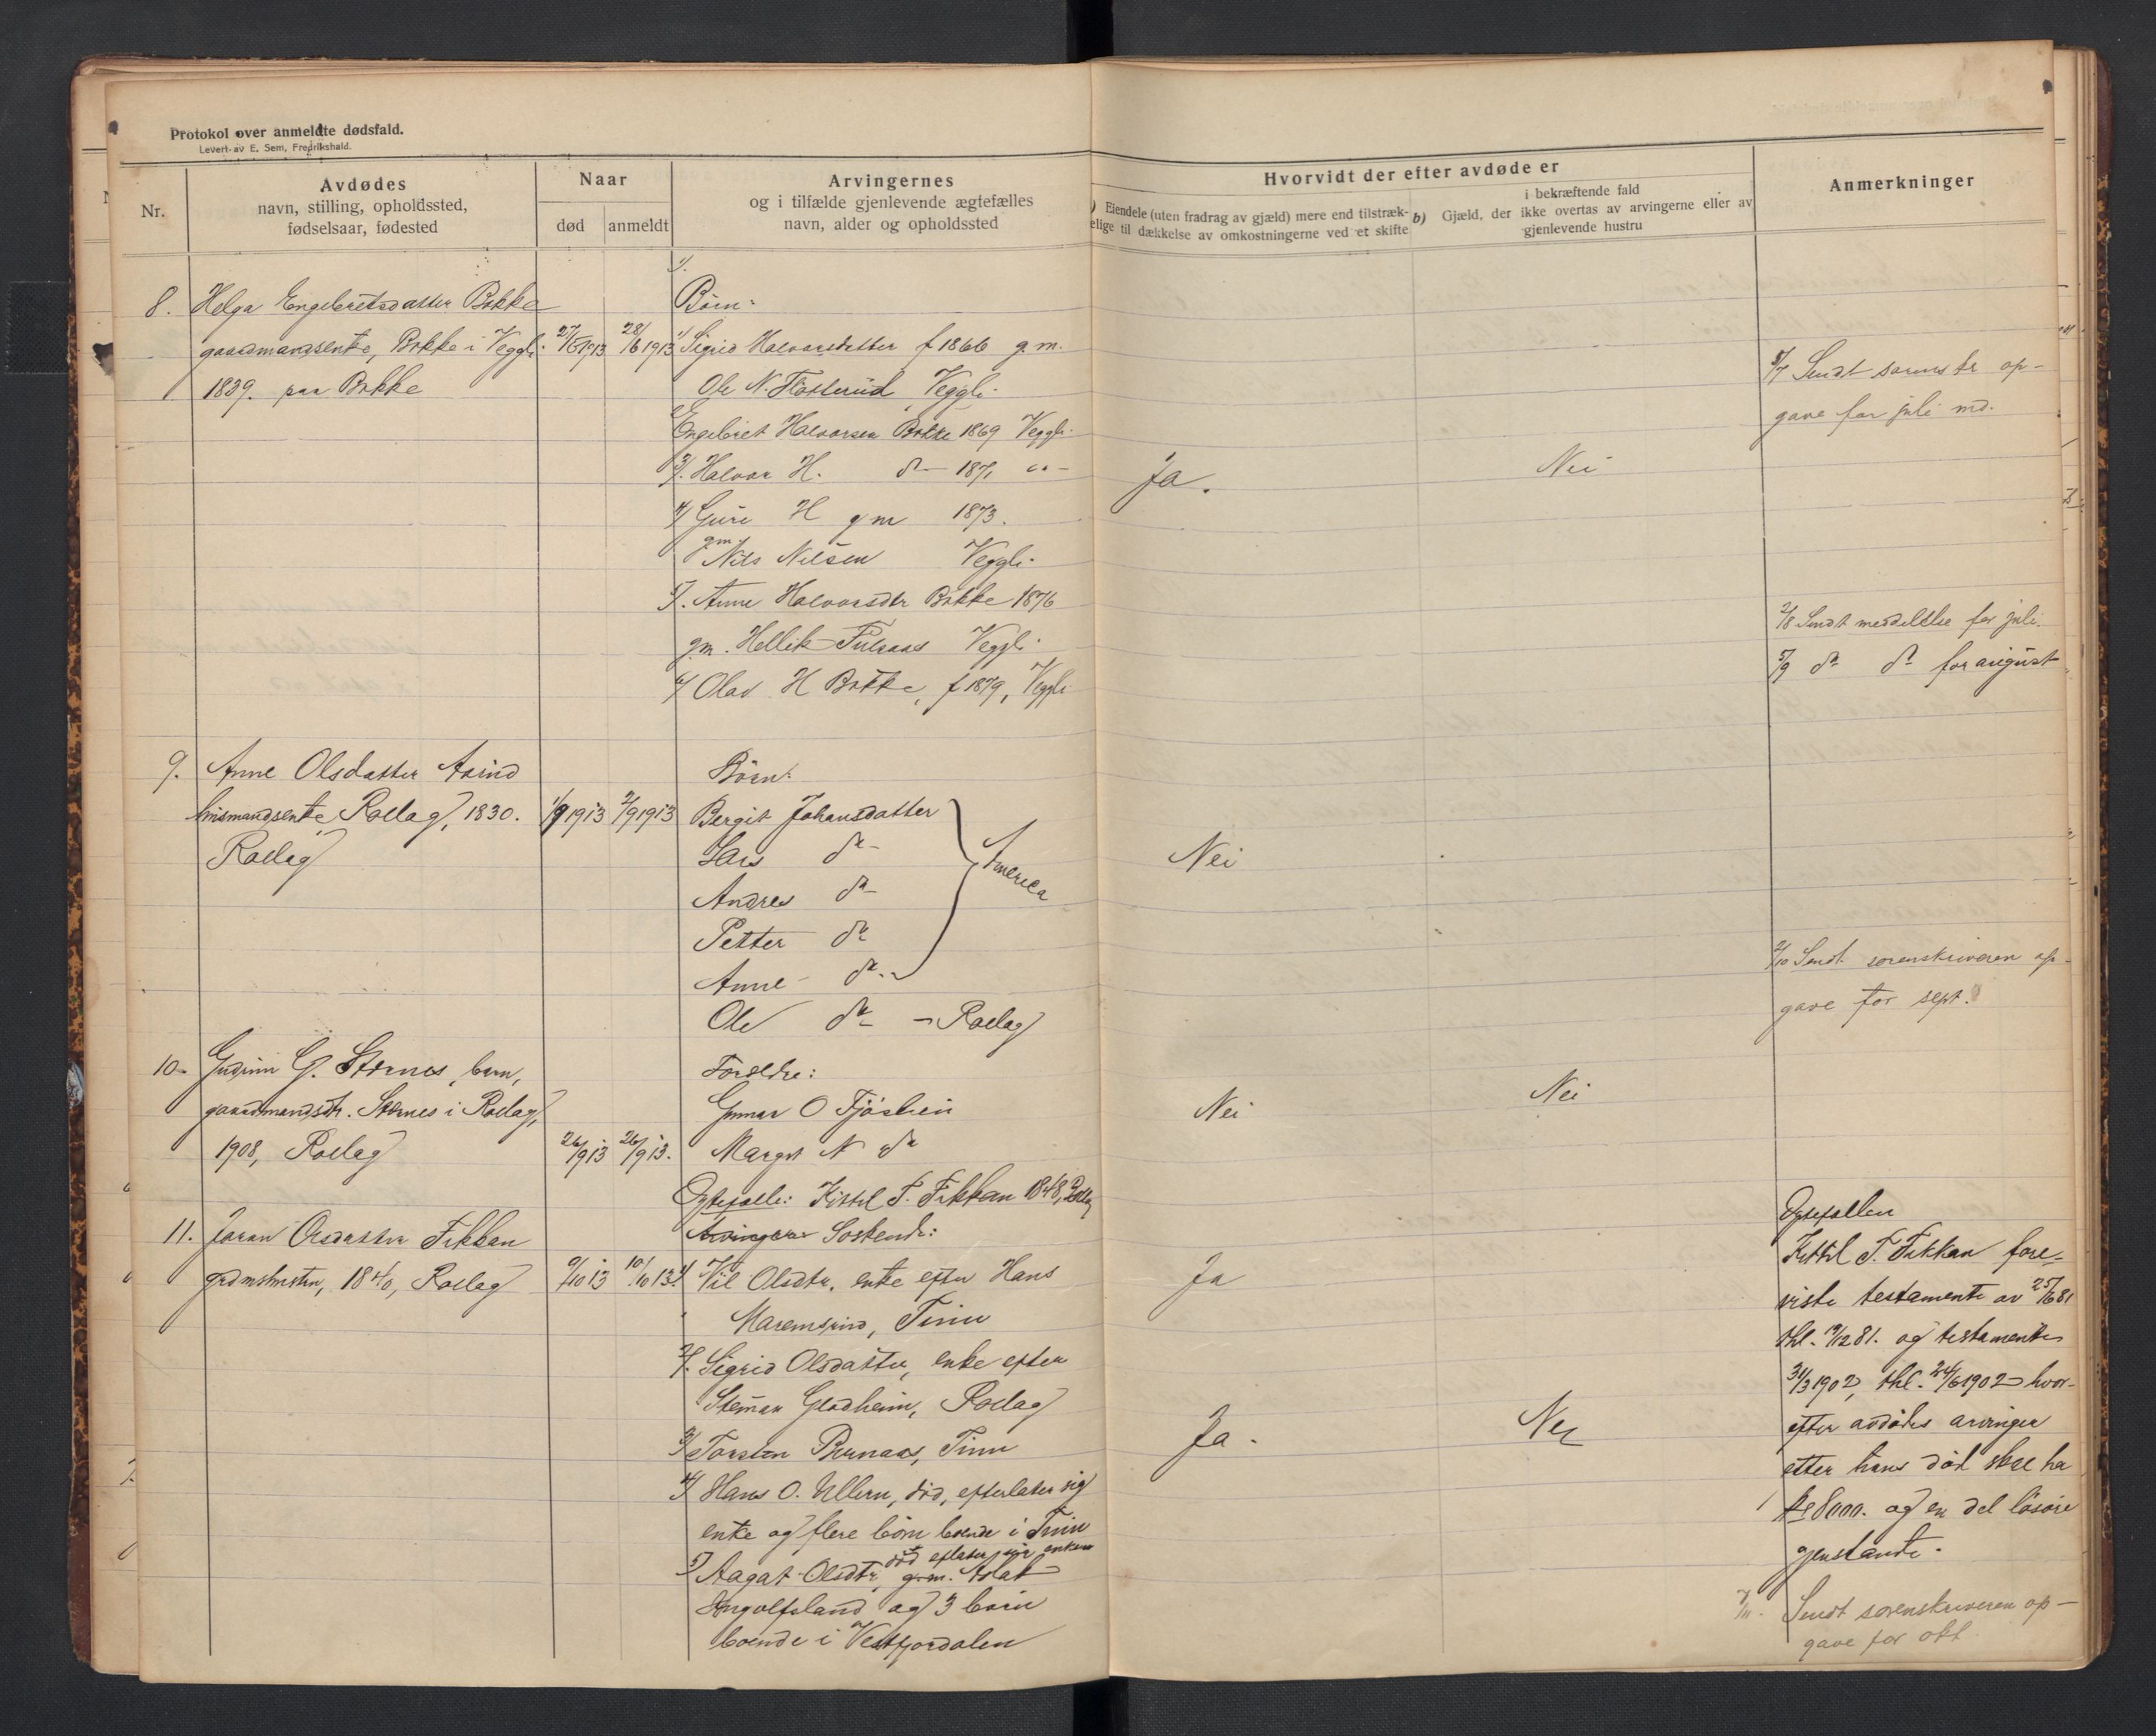 Protokol over anmeldte dødsfald.
Levert av E. Sem, Fredrikshald.
Nr.
Avdødes
navn, stilling, opholdssted,
fødselsaar, fødested
Naar
død
anmeldt
Arvingernes
og i tilfælde gjenlevende ægtefælles
navn, alder og opholdssted
Hvorvidt der efter avdøde er
Eiendele (uten fradrag av gjæld) mere end tilstræk-
elige til dækkelse av omkostningerne ved et skifte
b) i bekræftende fald
Gjæld, der ikke overtas av arvingerne eller av
gjenlevende hustru
Anmerkninger
8. Helga Engebretsdatter Bakke
gaardmandsenke, Bakke i Veggli. 27/6 1913 28/6 1913
1839. paa Bakke
Børn:
1/ Sigrid Halvorsdatter f 1866 g.m.
Ole N. Fløtterud Veggli.
2/ Engebret Halvorsen Bakke 1869 Veggli.
3/. Halvor H. do 1871 "-
4/ Guri H gm 1873.
gm Nils Nilsen Veggli.
5/. Anne Halvorsdtr Bakke 1876
gm. Hellik Veggli.
6/ Olav H Bakke, f 1879, Veggli
Ja.
Nei
5/7 Sendt sorenskr op-
gave for juli md.
2/8 Sendt meddelelse for juli.
5/9 do do for august
9. Anne Olsdatter
husmandsenke Rollag, 1830. 1/9 1913 2/9 1913
Rollag
Børn:
Bergit Johansdatter
Lars do
Andres do
Petter do
Anne do
America
Ole do - Rollag
Nei
2/10 Sendt sorenskriveren op-
gave for sept.
10. Gudrun G. Stærnes, barn,
gaardmandsdtr. Stærnes i Rollag,
1908, Rollag 26/9 13 26/9 13.
Foreldre:
Gunnar O
Margit N do
Nei
Nei
11. Joran Olsdatter Fekkan
grdmshustru, 1840, Rollag 9/10 13 10/10 13.
Egtefælle: Kittel T. Fekkan 1848, Rollag
Arvinger Søskende:
1/ Vil Olsdtr. enke efter Hans
Maremsrud, Tinn
2/. Sigrid Olsdatter, enke efter
Steinar Gladheim, Rollag
3/ Torsten Bernaas, Tinn
4/ Hans O. Ullern, død, efterlater sig
enke og flere børn boende i Tinn
5/ Aagat Olsdtr, død eflater sig enkem
g.m. Aslak
Ingolfsland og 3 børn
boende i Vestfjordalen
Ja
Ja.
Nei
Egtefellen
Kittel T. Fekkan fore-
viste testamente av 25/6 81
thl. 19/12 81. og testamente
31/3 1902, thl. 24/6 1902 hvor-
efter avdødes arvinger
etter hans død skal ha
kr 8000. og en del løsøre
genstande.
7/11. Sendt sorenskriveren op-
gave for okt.